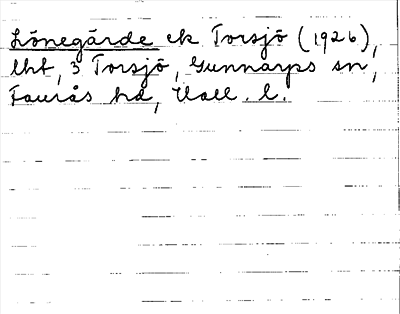 Lönegärde ek Torsjö (1926),
lht, 3 Torsjö, Gunnarps sn,
Faurås hd, Hall. l.